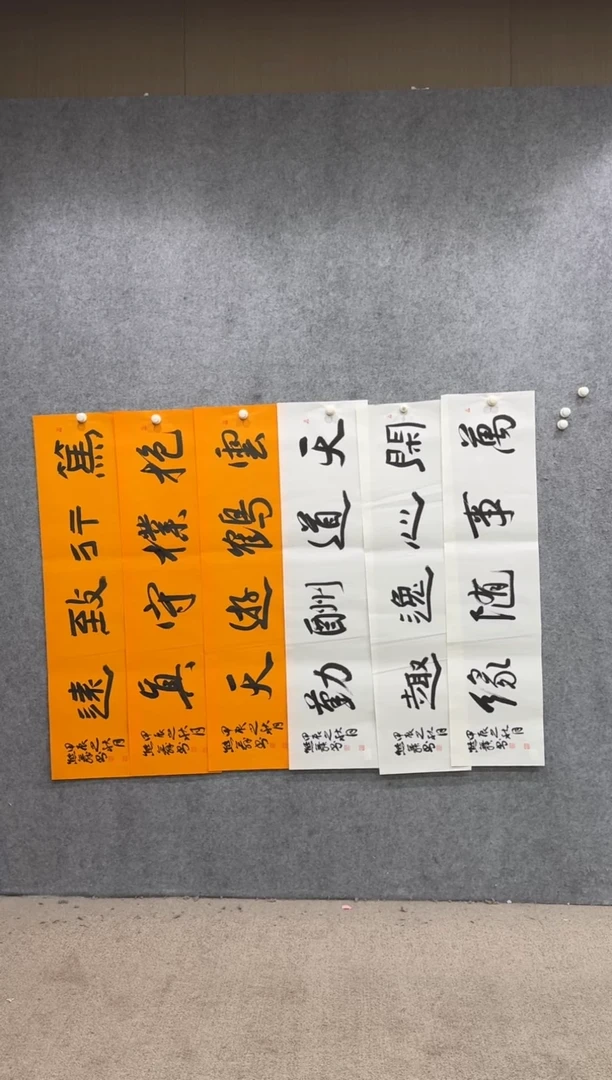 萬事随緣
甲辰之秋月
閑心逸趣
甲辰之秋月
天道酬勤
甲辰之秋月
雲鶴遊天
甲辰之秋月
抱樸守真
甲辰之秋月
篤行致遠
甲辰之秋月